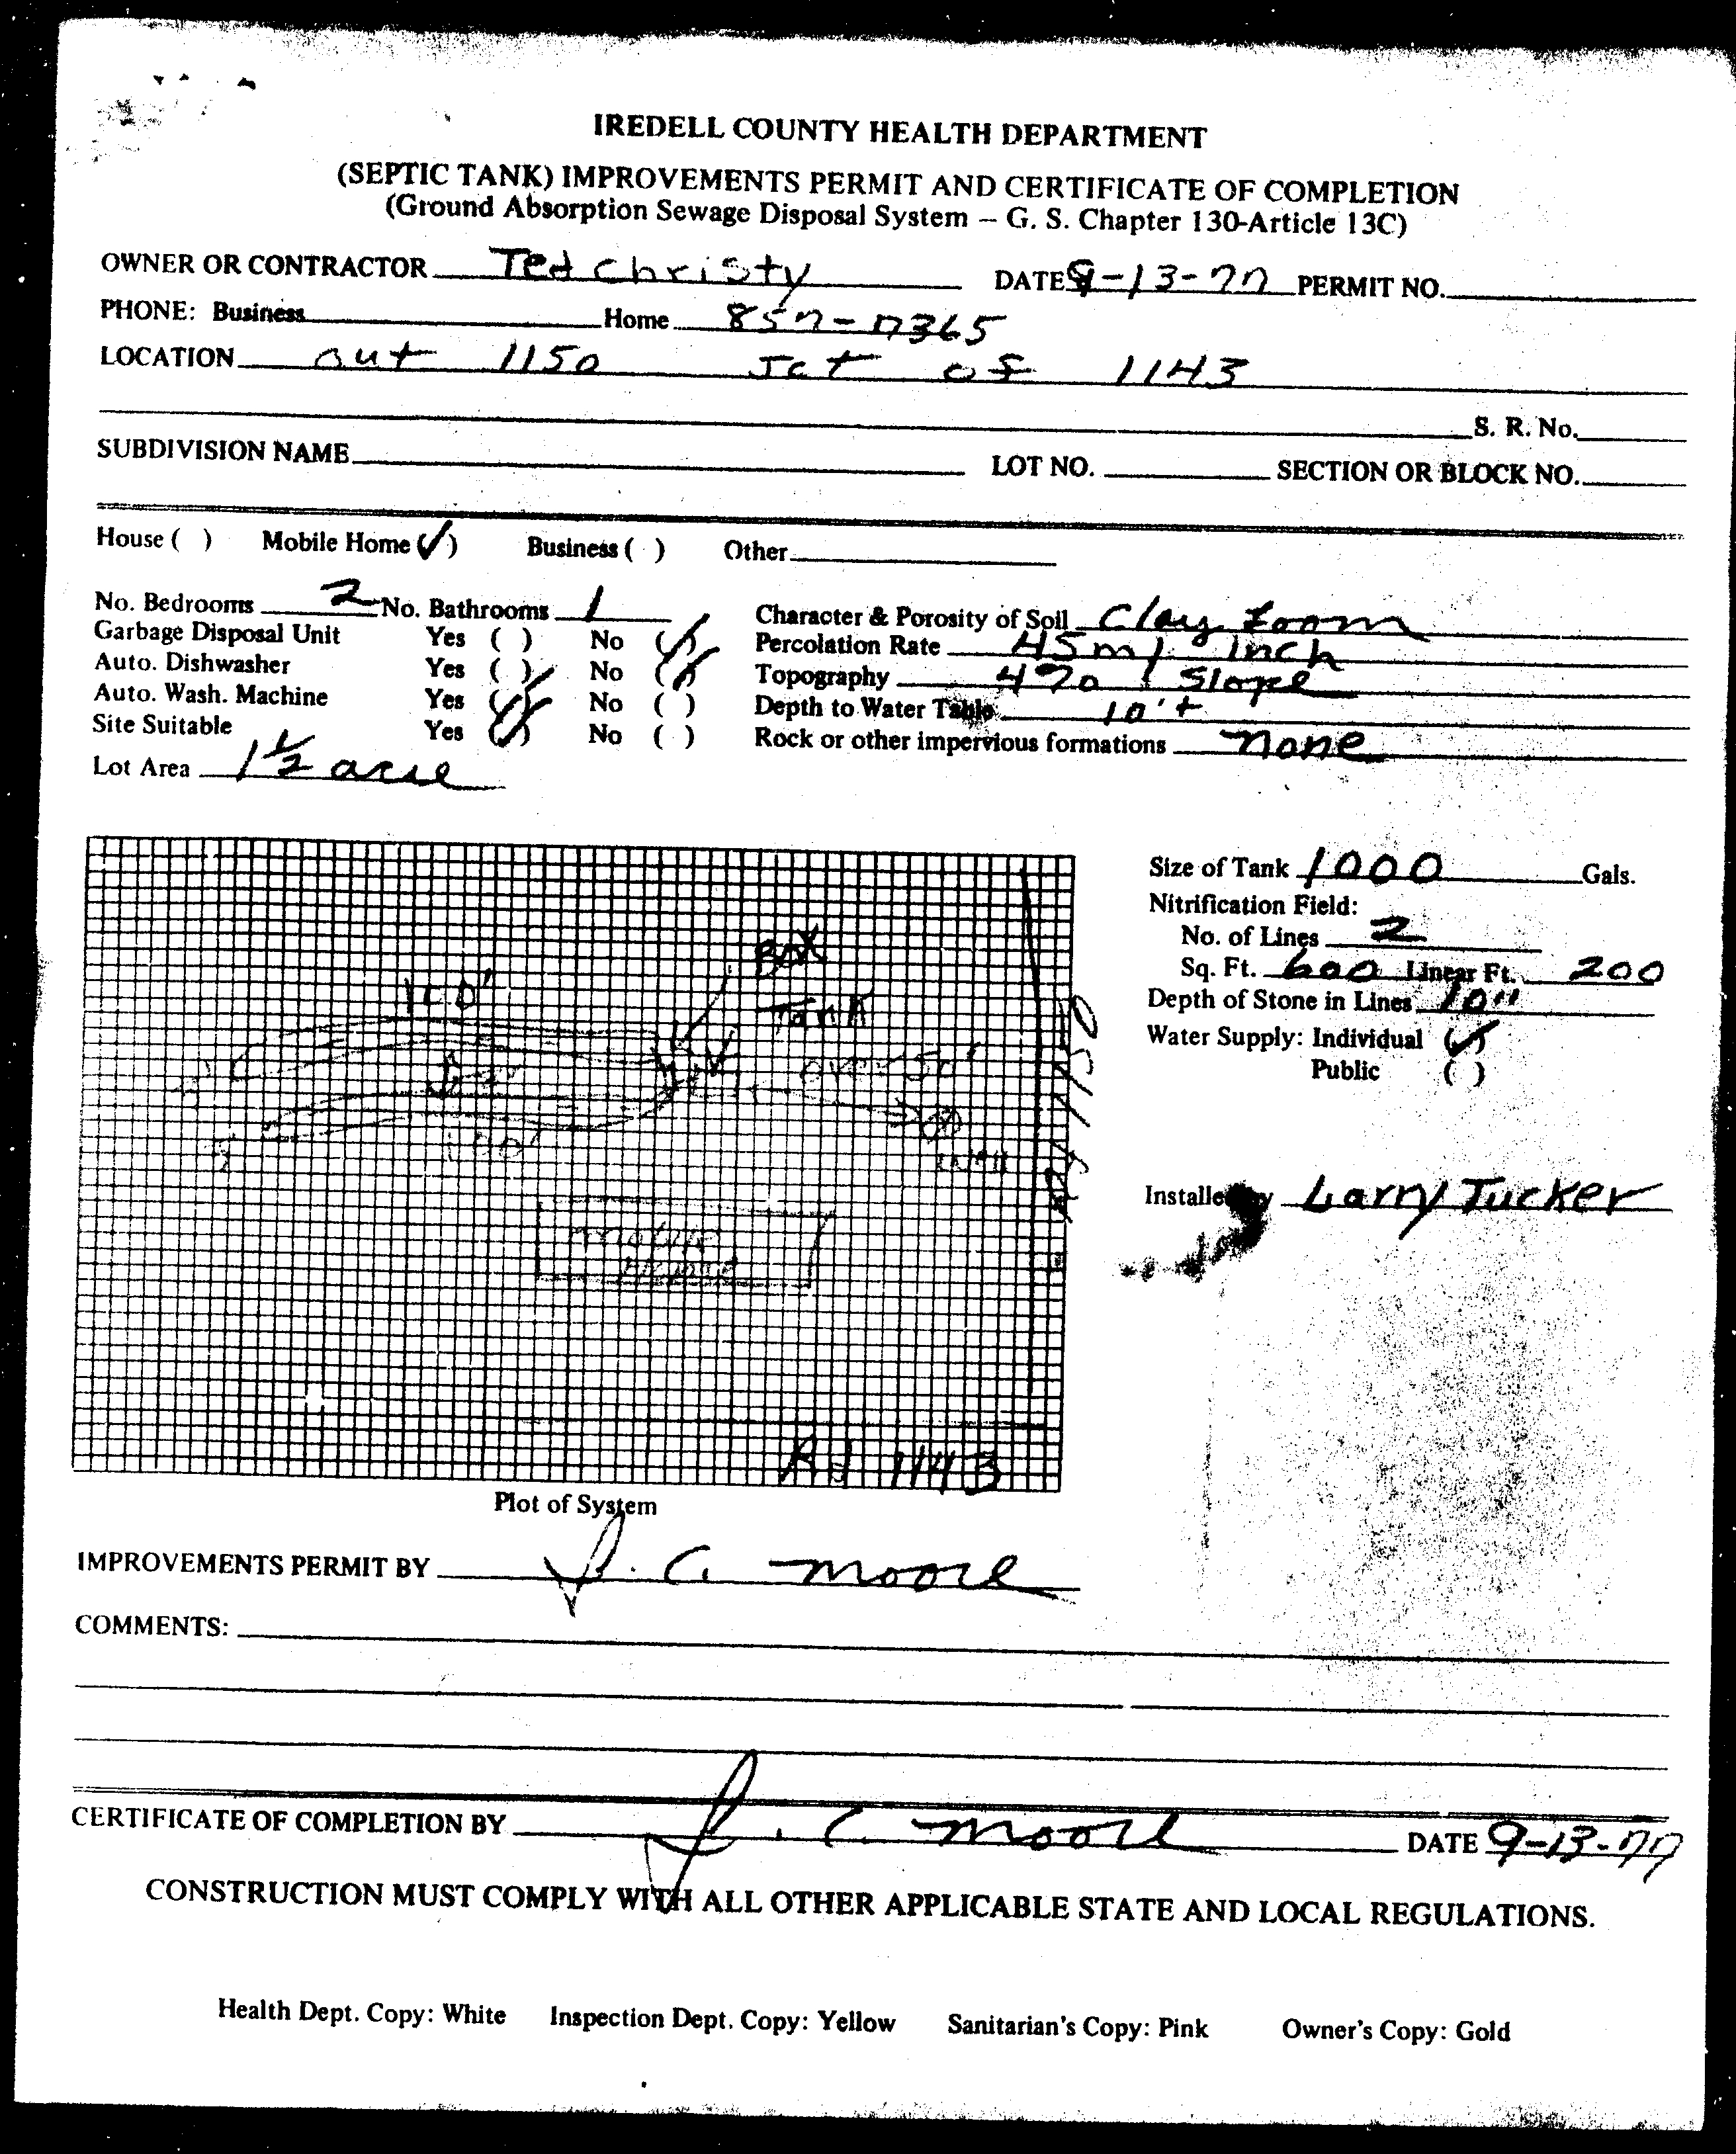 IREDELL COUNTY HEALTH DEPARTMENT
(SEPTIC TANK) IMPROVEMENTS PERMIT AND CERTIFICATE OF COMPLETION
(Ground Absorption Sewage Disposal System – G. S. Chapter 130-Article 13C)
OWNER OR CONTRACTOR Ted Christy DATE 9-13-77 PERMIT NO.
PHONE: Business Home 857-7365
LOCATION out 1150 Jct of 1143
S. R. No.
SUBDIVISION NAME LOT NO. SECTION OR BLOCK NO.
House ( ) Mobile Home (✓) Business ( ) Other
No. Bedrooms 2 No. Bathrooms 1
Garbage Disposal Unit Yes ( ) No (✓)
Auto. Dishwasher Yes ( ) No (✓)
Auto. Wash. Machine Yes (✓) No ( )
Site Suitable Yes (✓) No ( )
Lot Area 1 1/2 acre
Character & Porosity of Soil Clay Loom
Percolation Rate 45 m/ inch
Topography 4% Slope
Depth to Water Table 10'+
Rock or other impervious formations none
Box
100'
Tank
over 50'
100'
Well
Mobile
Home
Rd 1150
Rd 1143
Plot of System
Size of Tank 1000 Gals.
Nitrification Field:
No. of Lines 2
Sq. Ft. 600 Linear Ft. 200
Depth of Stone in Lines 10"
Water Supply: Individual (✓)
Public ( )
Installed by Larry Tucker
IMPROVEMENTS PERMIT BY J. C. Moore
COMMENTS:
CERTIFICATE OF COMPLETION BY J. C. Moore DATE 9-13-77
CONSTRUCTION MUST COMPLY WITH ALL OTHER APPLICABLE STATE AND LOCAL REGULATIONS.
Health Dept. Copy: White Inspection Dept. Copy: Yellow Sanitarian's Copy: Pink Owner's Copy: Gold